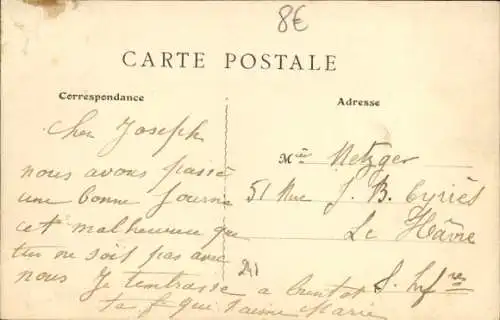 8€
CARTE POSTALE
Correspondance
Adresse
Cher Joseph
nous avons passé
une bonne Journe
cet malheureu que
tu ne soit pas avec
nous Je t'embrasse a bientot
ta f qui t'aime Marie
Metzger
51 Rue J. B. Eyriès
Le Hâvre
S. Infre
241